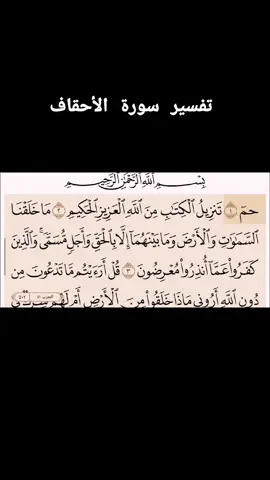 تفسير سورة الأحقاف
بِسْمِ اللَّهِ الرَّحْمَٰنِ الرَّحِيمِ
حمٓ ۝١ تَنزِيلُ الْكِتَابِ مِنَ اللَّهِ الْعَزِيزِ الْحَكِيمِ ۝٢ مَا خَلَقْنَا
السَّمَاوَاتِ وَالْأَرْضَ وَمَا بَيْنَهُمَا إِلَّا بِالْحَقِّ وَأَجَلٍ مُّسَمًّى ۚ وَالَّذِينَ
كَفَرُوا عَمَّا أُنذِرُوا مُعْرِضُونَ ۝٣ قُلْ أَرَأَيْتُم مَّا تَدْعُونَ مِن
دُونِ اللَّهِ أَرُونِي مَاذَا خَلَقُوا مِنَ الْأَرْضِ أَمْ لَهُمْ شِرْكٌ